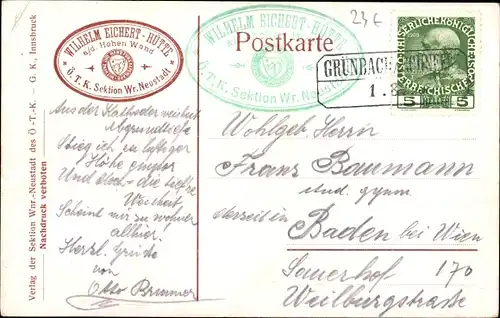 Verlag der Sektion Wnr.-Neustadt des Ö.-T.-K. — G. K., Innsbruck
Nachdruck verboten
WILHELM EICHERT-HÜTTE
a/d. Hohen Wand
Ö.T.K. Sektion Wr. Neustadt
WILHELM EICHERT-HÜTTE
Ö.T.K. Sektion Wr. Neustadt
24 €
Postkarte
GRÜNBACH
1. 8
1908
5 5
Aus der
Stieg ich zu luftiger
Höhe empor
Und doch - die tiefste
Weisheit
Scheint mir zu wohnen
allhier.
Herzl. Grüße
von
Otto Brunner
Wohlgeb. Herrn
Franz Baumann
stud. gymn.
derzeit in
Baden bei Wien
Sauerhof 170
Weilburgstraße